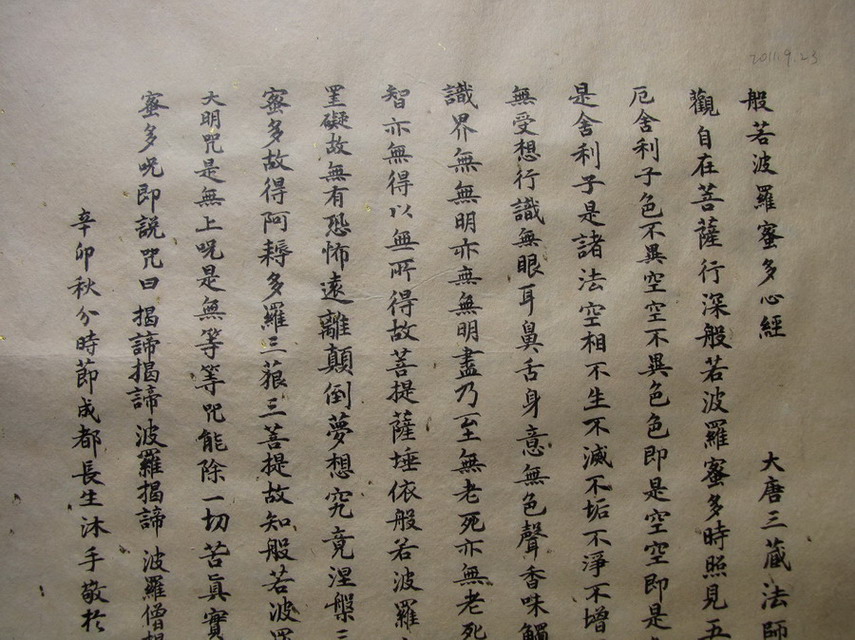 2011.9.23
般若波羅蜜多心經 大唐三藏法師
觀自在菩薩行深般若波羅蜜多時照見五
厄舍利子色不異空空不異色色即是空空即是
是舍利子是諸法空相不生不滅不垢不淨不增
無受想行識無眼耳鼻舌身意無色聲香味觸
識界無無明亦無無明盡乃至無老死亦無老死
智亦無得以無所得故菩提薩埵依般若波羅
罣礙故無有恐怖遠離顛倒夢想究竟涅槃三
蜜多故得阿耨多羅三藐三菩提故知般若波
大明咒是無上呪是無等等咒能除一切苦真實
蜜多呪即說咒曰揭諦揭諦波羅揭諦 波羅僧揭
辛卯秋分時節成都長生沐手敬於